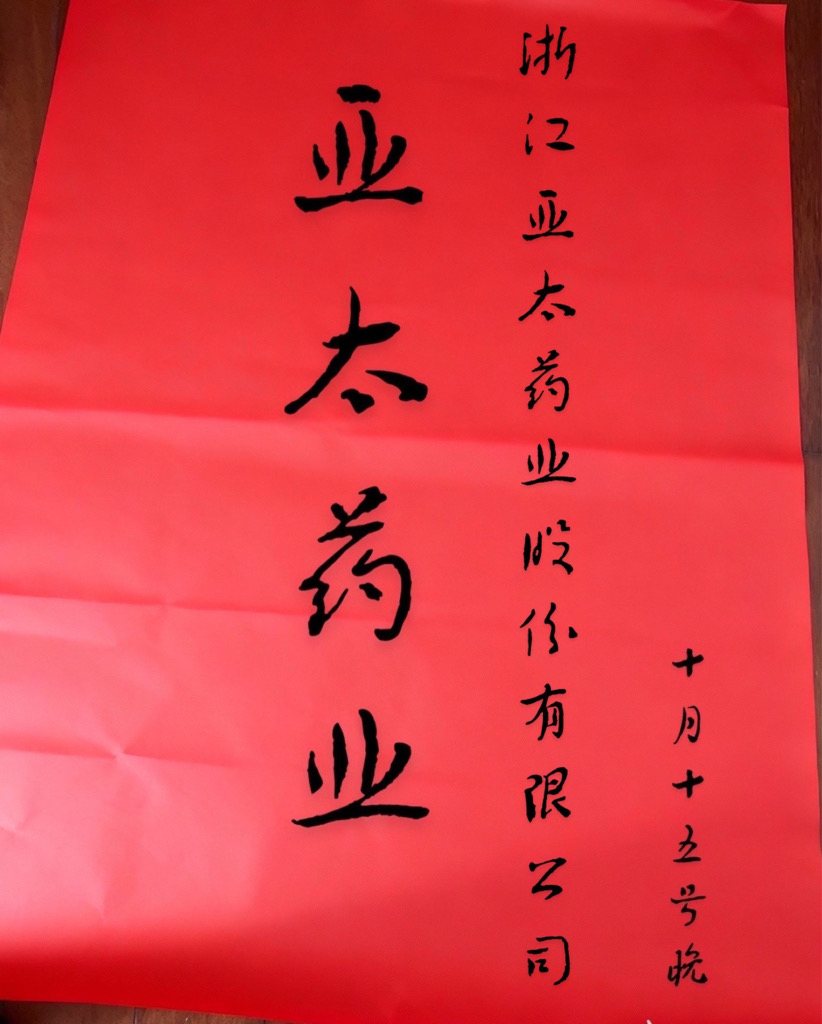 十月十五号晚
浙江亚太药业股份有限公司
亚太药业